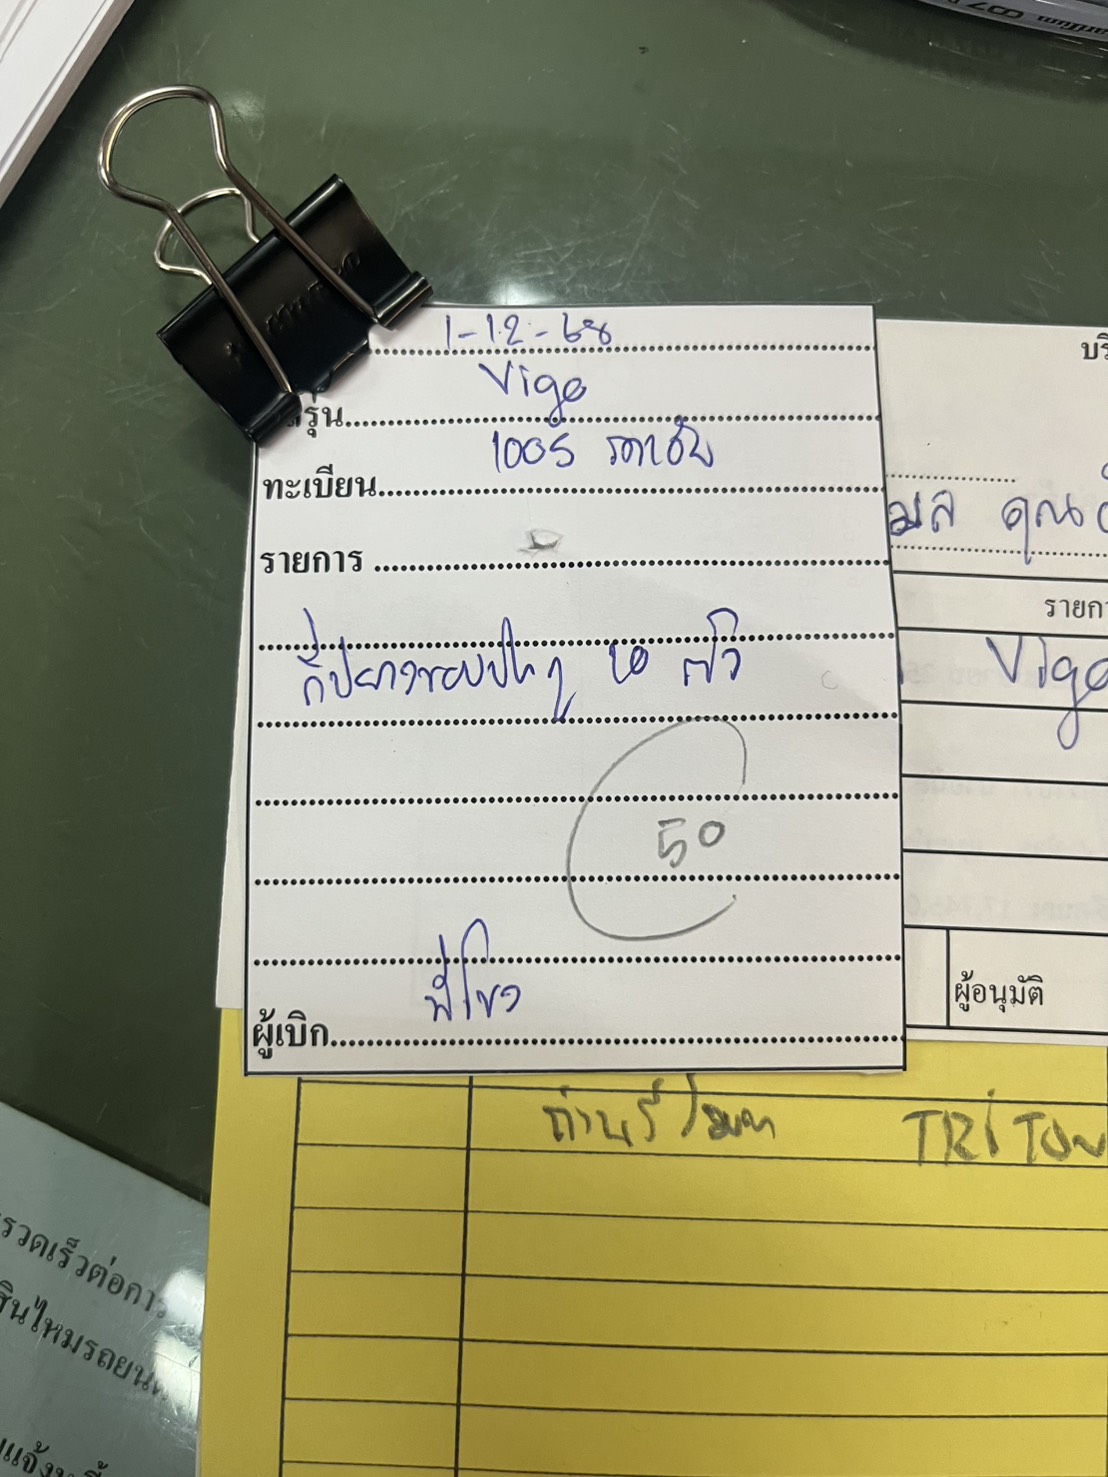 1-12-68
รุ่น Vigo
ทะเบียน
รายการ
กิ๊ปยางขอบประตู 10 ตัว
50
ผู้เบิก พี่โชว
บริ
มล คุณ
รายกา
Vigo
ผู้อนุมัติ
ถ่านรีโมท TRiTON
รวดเร็วต่อกา
สินไหมรถยนต